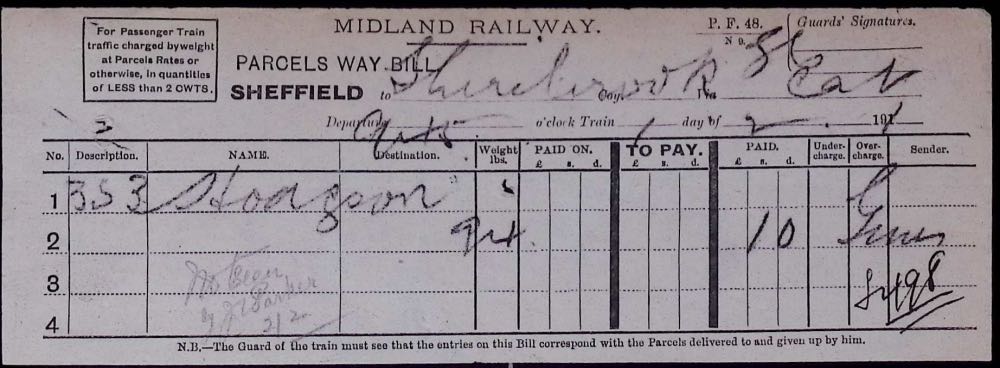 For Passenger Train
traffic charged by weight
at Parcels Rates or
otherwise, in quantities
of LESS than 2 CWTS.
MIDLAND RAILWAY.
P. F. 48.
N 9.
Guards' Signatures.
PARCELS WAY BILL
SHEFFIELD to Coy.
Departure o'clock Train 1 day of 2 191
No. Description. NAME. Destination. Weight lbs. PAID ON. £ s. d. TO PAY. £ s. d. PAID. £ s. d. Under-charge. Over-charge. Sender.
1 353 Hodgson
2 10
3
4
Not Been
2/2
N.B.—The Guard of the train must see that the entries on this Bill correspond with the Parcels delivered to and given up by him.